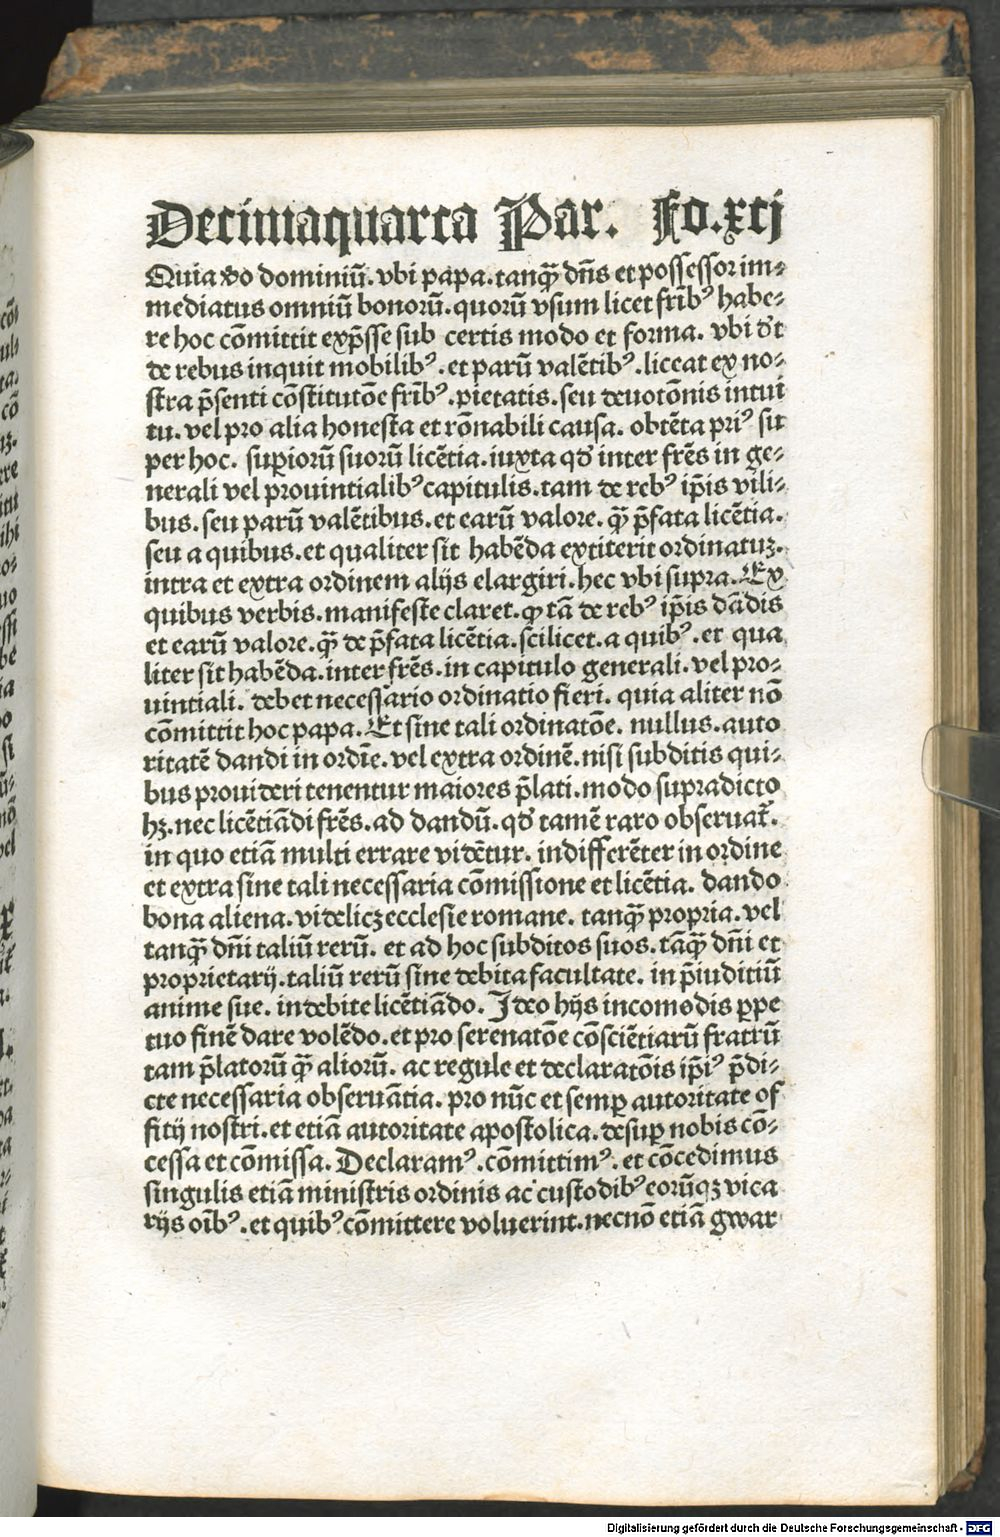 Decimaquarta Par. Fo.xcij
Quia v̄o dominiū. vbi papa. tanq̄ dn̄s et possessor im-
mediatus omniū bonorū. quorū vsum licet frīb⁹ habe-
re hoc cōmittit exp̄sse sub certis modo et forma. vbi d't
de rebus inquit mobilib⁹. et parū valētib⁹. liceat ex no-
stra p̄senti cōstitutōe frīb⁹. pietatis. seu deuotōnis intui
tu. vel pro alia honesta et rōnabili causa. obtēta pri⁹ sit
per hoc. suꝑiorū suorū licētia. iuxta qd' inter frēs in ge-
nerali vel prouintialib⁹ capitulis. tam de reb⁹ ip̄is vili-
bus. seu parū valētibus. et earū valore. q̄ p̄fata licētia.
seu a quibus. et qualiter sit habēda extiterit ordinatuꝫ.
intra et extra ordinem alijs elargiri. hec vbi supra. Ex
quibus verbis. manifeste claret. ꝙ tā de reb⁹ ip̄is dādis
et earū valore. q̄ de p̄fata licētia. scilicet. a quib⁹. et qua
liter sit habēda. inter frēs. in capitulo generali. vel pro-
uintiali. debet necessario ordinatio fieri. quia aliter nō
cōmittit hoc papa. Et sine tali ordinatōe. nullus. auto
ritatē dandi in ordīe. vel extra ordinē. nisi subditis qui-
bus prouideri tenentur maiores p̄lati. modo supradicto
hꝫ. nec licētiādi frēs. ad dandū. qd' tamē raro obseruat̄.
in quo etiā multi errare vidētur. indifferēter in ordine
et extra sine tali necessaria cōmissione et licētia. dando
bona aliena. videlicꝫ ecclesie romane. tanq̄ propria. vel
tanq̄ dn̄i taliū rerū. et ad hoc subditos suos. tāq̄ dn̄i et
proprietarij. taliū rerū sine debita facultate. in p̄iuditiū
anime sue. indebite licētiādo. Ideo hijs incomodis ꝑpe
tuo finē dare volēdo. et pro serenatōe cōsciētiarū fratrū
tam p̄latorū q̄ aliorū. ac regule et declaratōis ip̄i⁹ p̄di-
cte necessaria obseruātia. pro nūc et semꝑ autoritate of
fitij nostri. et etiā autoritate apostolica. desuꝑ nobis cō-
cessa et cōmissa. Declaram⁹. cōmittim⁹. et cōcedimus
singulis etiā ministris ordinis ac custodib⁹ eorūqꝫ vica
rijs oīb⁹. et quib⁹ cōmittere voluerint. necnō etiā gwar
Digitalisierung gefördert durch die Deutsche Forschungsgemeinschaft - DFG